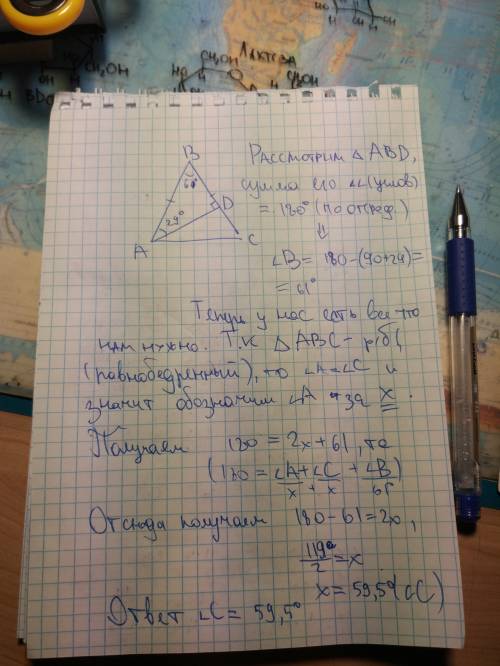 Лактоза
CH₂OH
CH₂OH
CH₂OH
HO
OH
B
61°
D
29°
A
C
Рассмотрим △ ABD,
сумма его ∠∠(углов)
= 180° (по опред.)
⇓
∠B = 180-(90+29)=
= 61°
Теперь у нас есть все что
нам нужно. Т.к △ ABC - р/б(
(равнобедренный), то ∠A=∠C и
значит обозначим ∠A за x.
Получаем 180 = 2x+61, то
(180 = ∠A+∠C + ∠B)
x + x 61
Отсюда получаем 180-61=2x,
119°/2 = x
x = 59,5°(∠C)
Ответ ∠C = 59,5°